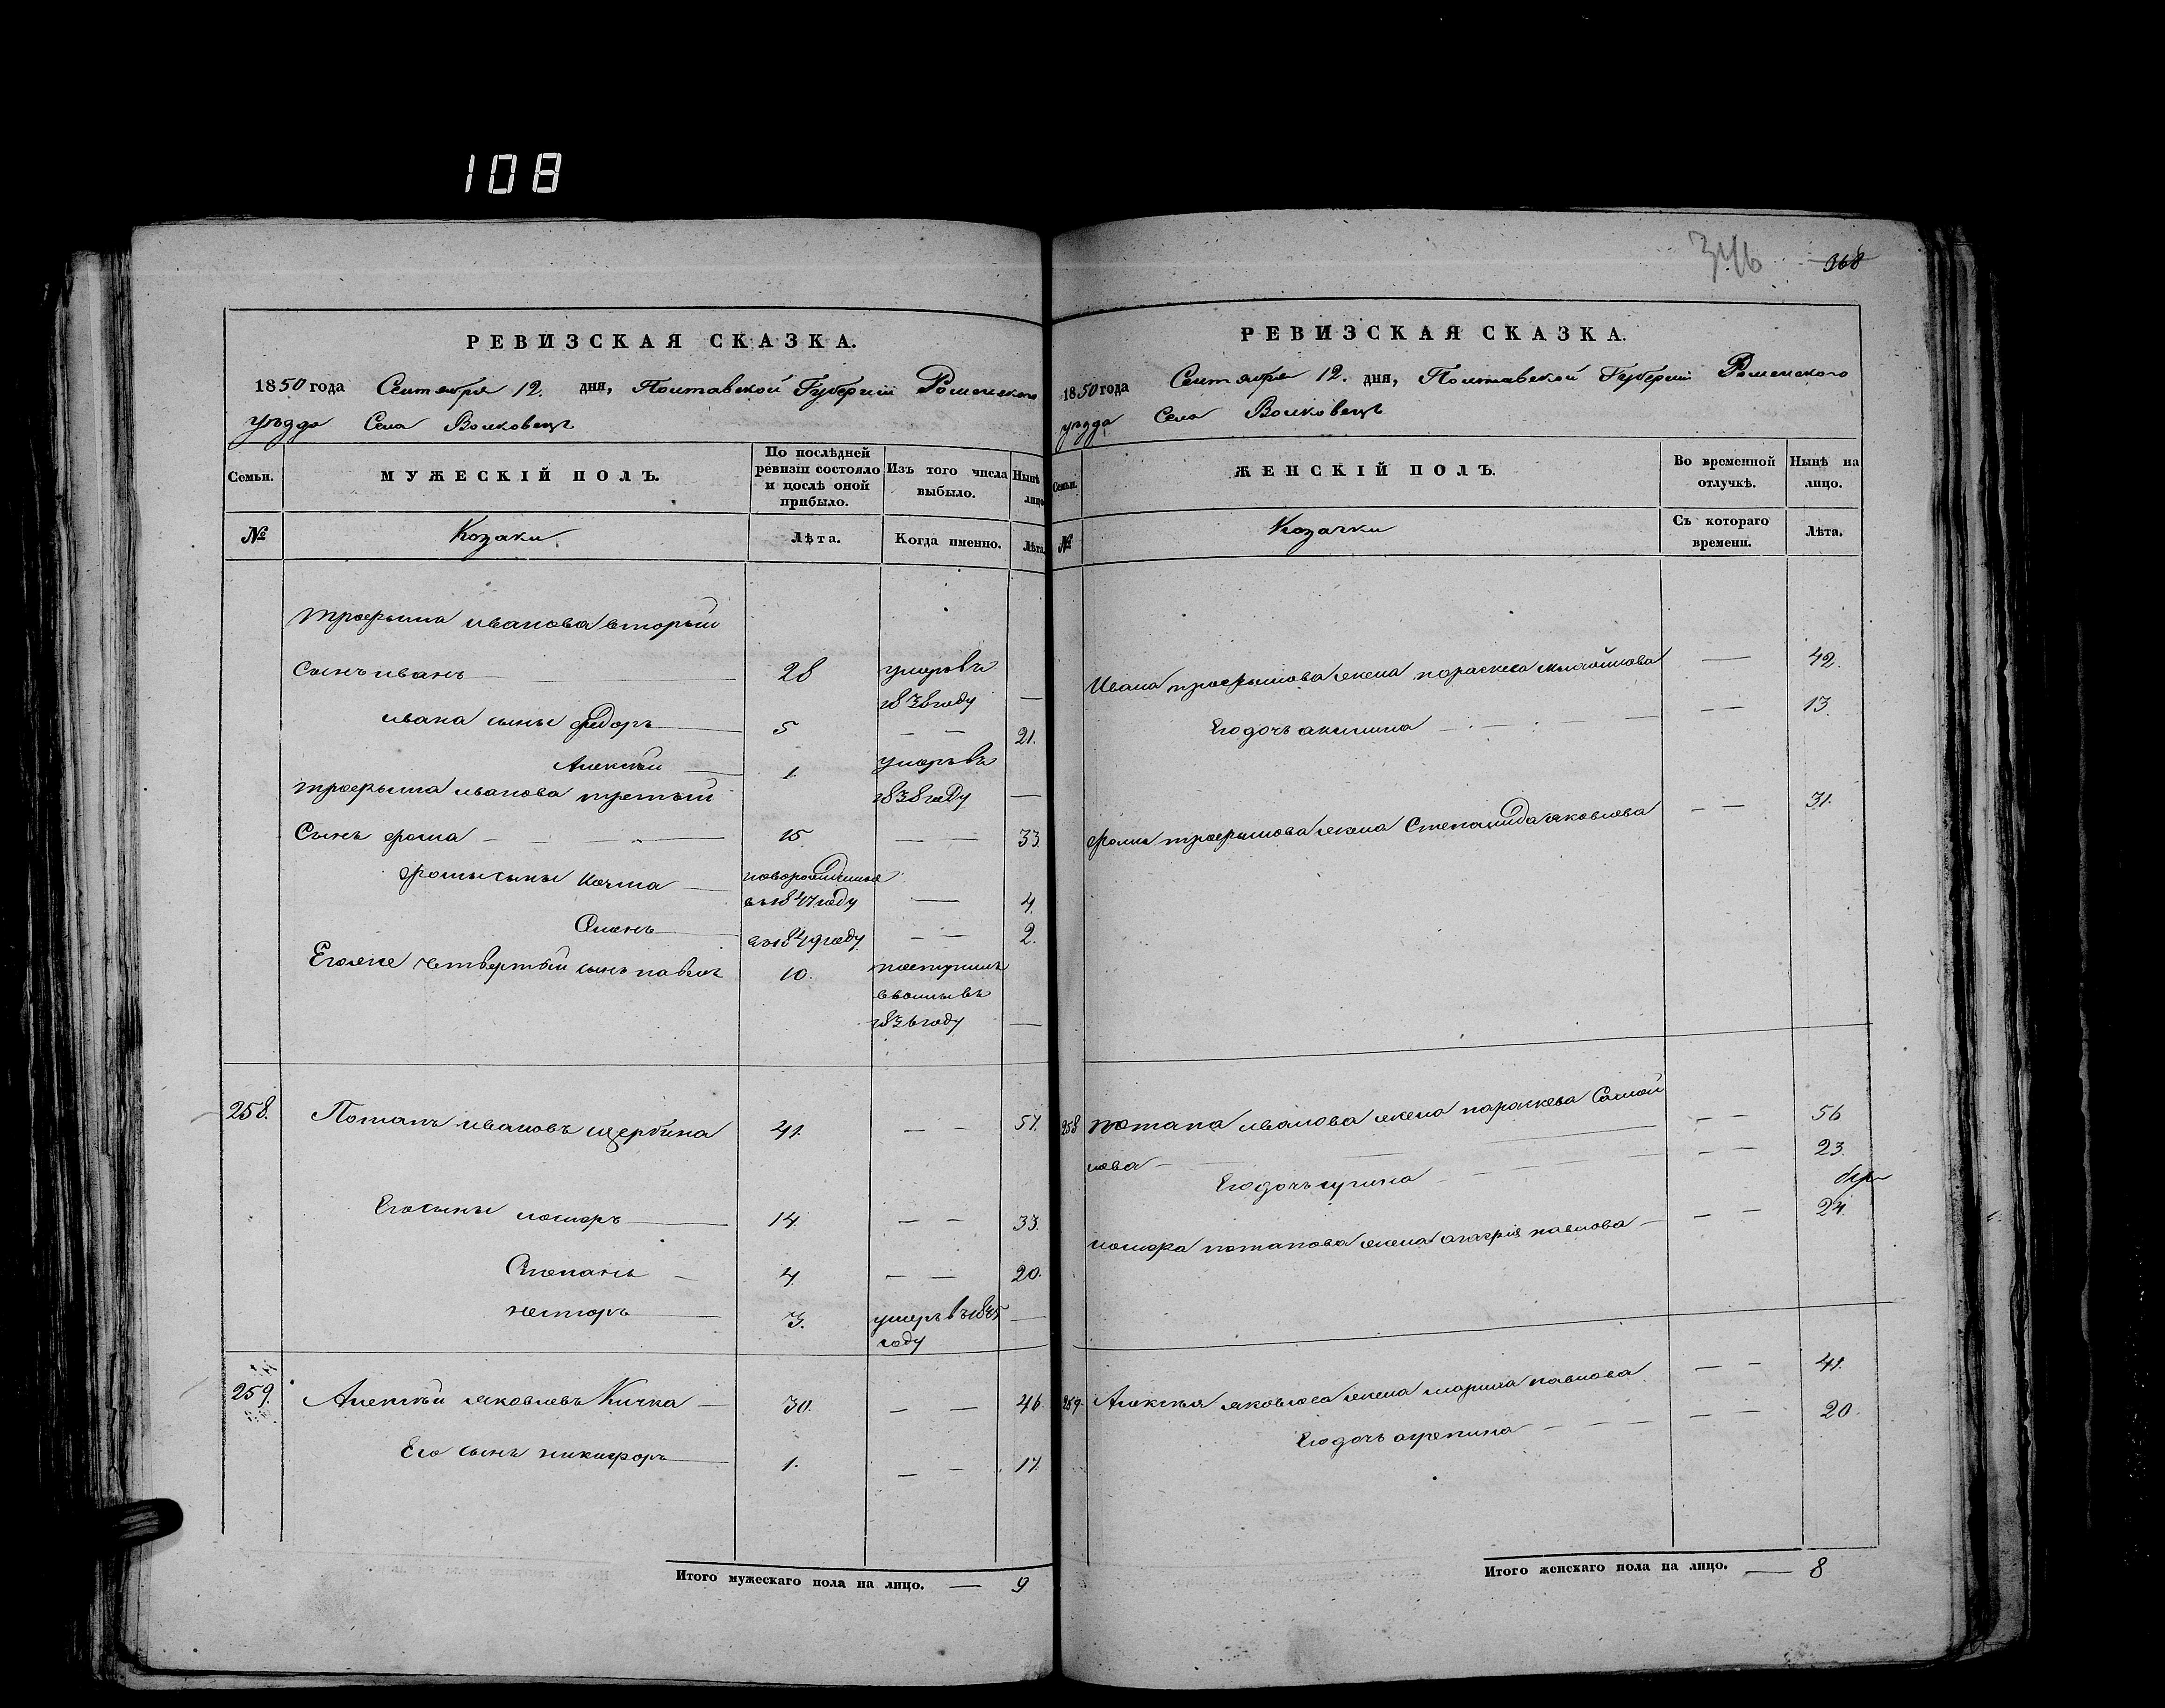 108
346 368
РЕВИЗСКАЯ СКАЗКА.
1850 года Сентября 12. дня, Полтавской Губерніи Роменского
уѣзда Села Волковецъ
Семьи. МУЖЕСКІЙ ПОЛЪ. По послѣдней ревизіи состояло и послѣ оной прибыло. Изъ того числа выбыло. Нынѣ на лицо
№ Козаки Лѣта. Когда именно. Лѣта.
трофыма иванова вторый
сынъ иванъ 28 умеръ въ
1838 году —
ивана сыны федоръ 5 — — 21.
Алексѣй 1. умеръ въ
трофыма иванова третый 1838 году —
Сынъ фома 15. — — 33.
фомы сыны Козма новорожденные
въ 1847 году — 4.
Симонъ въ 1849 году — — 2.
Егоже четвертый сынъ павелъ 10. поступилъ
1836 году —
258. Потапъ ивановъ щербина 41. — — 57.
Его сыны 14. — — 33.
Степанъ 4. — — 20.
несторъ 3. умеръ въ 1845 —
году
259. Алексѣй яковлевъ Кичка 30. — — 46.
Его сынъ никифоръ 1. — — 17.
Итого мужескаго пола на лицо. — 9
РЕВИЗСКАЯ СКАЗКА.
1850 года Сентября 12. дня, Полтавской Губерніи Роменского
уѣзда Села Волковецъ
Семьи. ЖЕНСКІЙ ПОЛЪ. Во временной отлучкѣ. Нынѣ на лицо.
№ Козачки Съ котораго времени. Лѣта.
Ивана трофымова жена параскева — 42.
Его дочь акилина — — 13.
фомы трофымова жена Степанида яковлева — — 31.
258 потапа иванова жена параскева Самой — — 56
лова
Его дочь ирина — — 23.
потапова жена агафія павлова — — — 24.
259. Алексѣя яковлева жена марина павлова — — 41.
Его дочь агрепина — — 20.
Итого женскаго пола на лицо. — 8